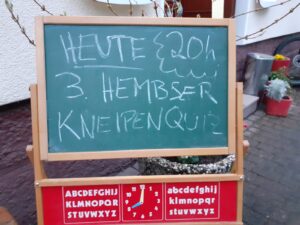 HEUTE 20h
3. HEMBSER
KNEIPENQUIZ
ABCDEFGHIJ
KLMNOPQR
STUVWXYZ
abcdefghij
klmnopqr
stuvwxyz